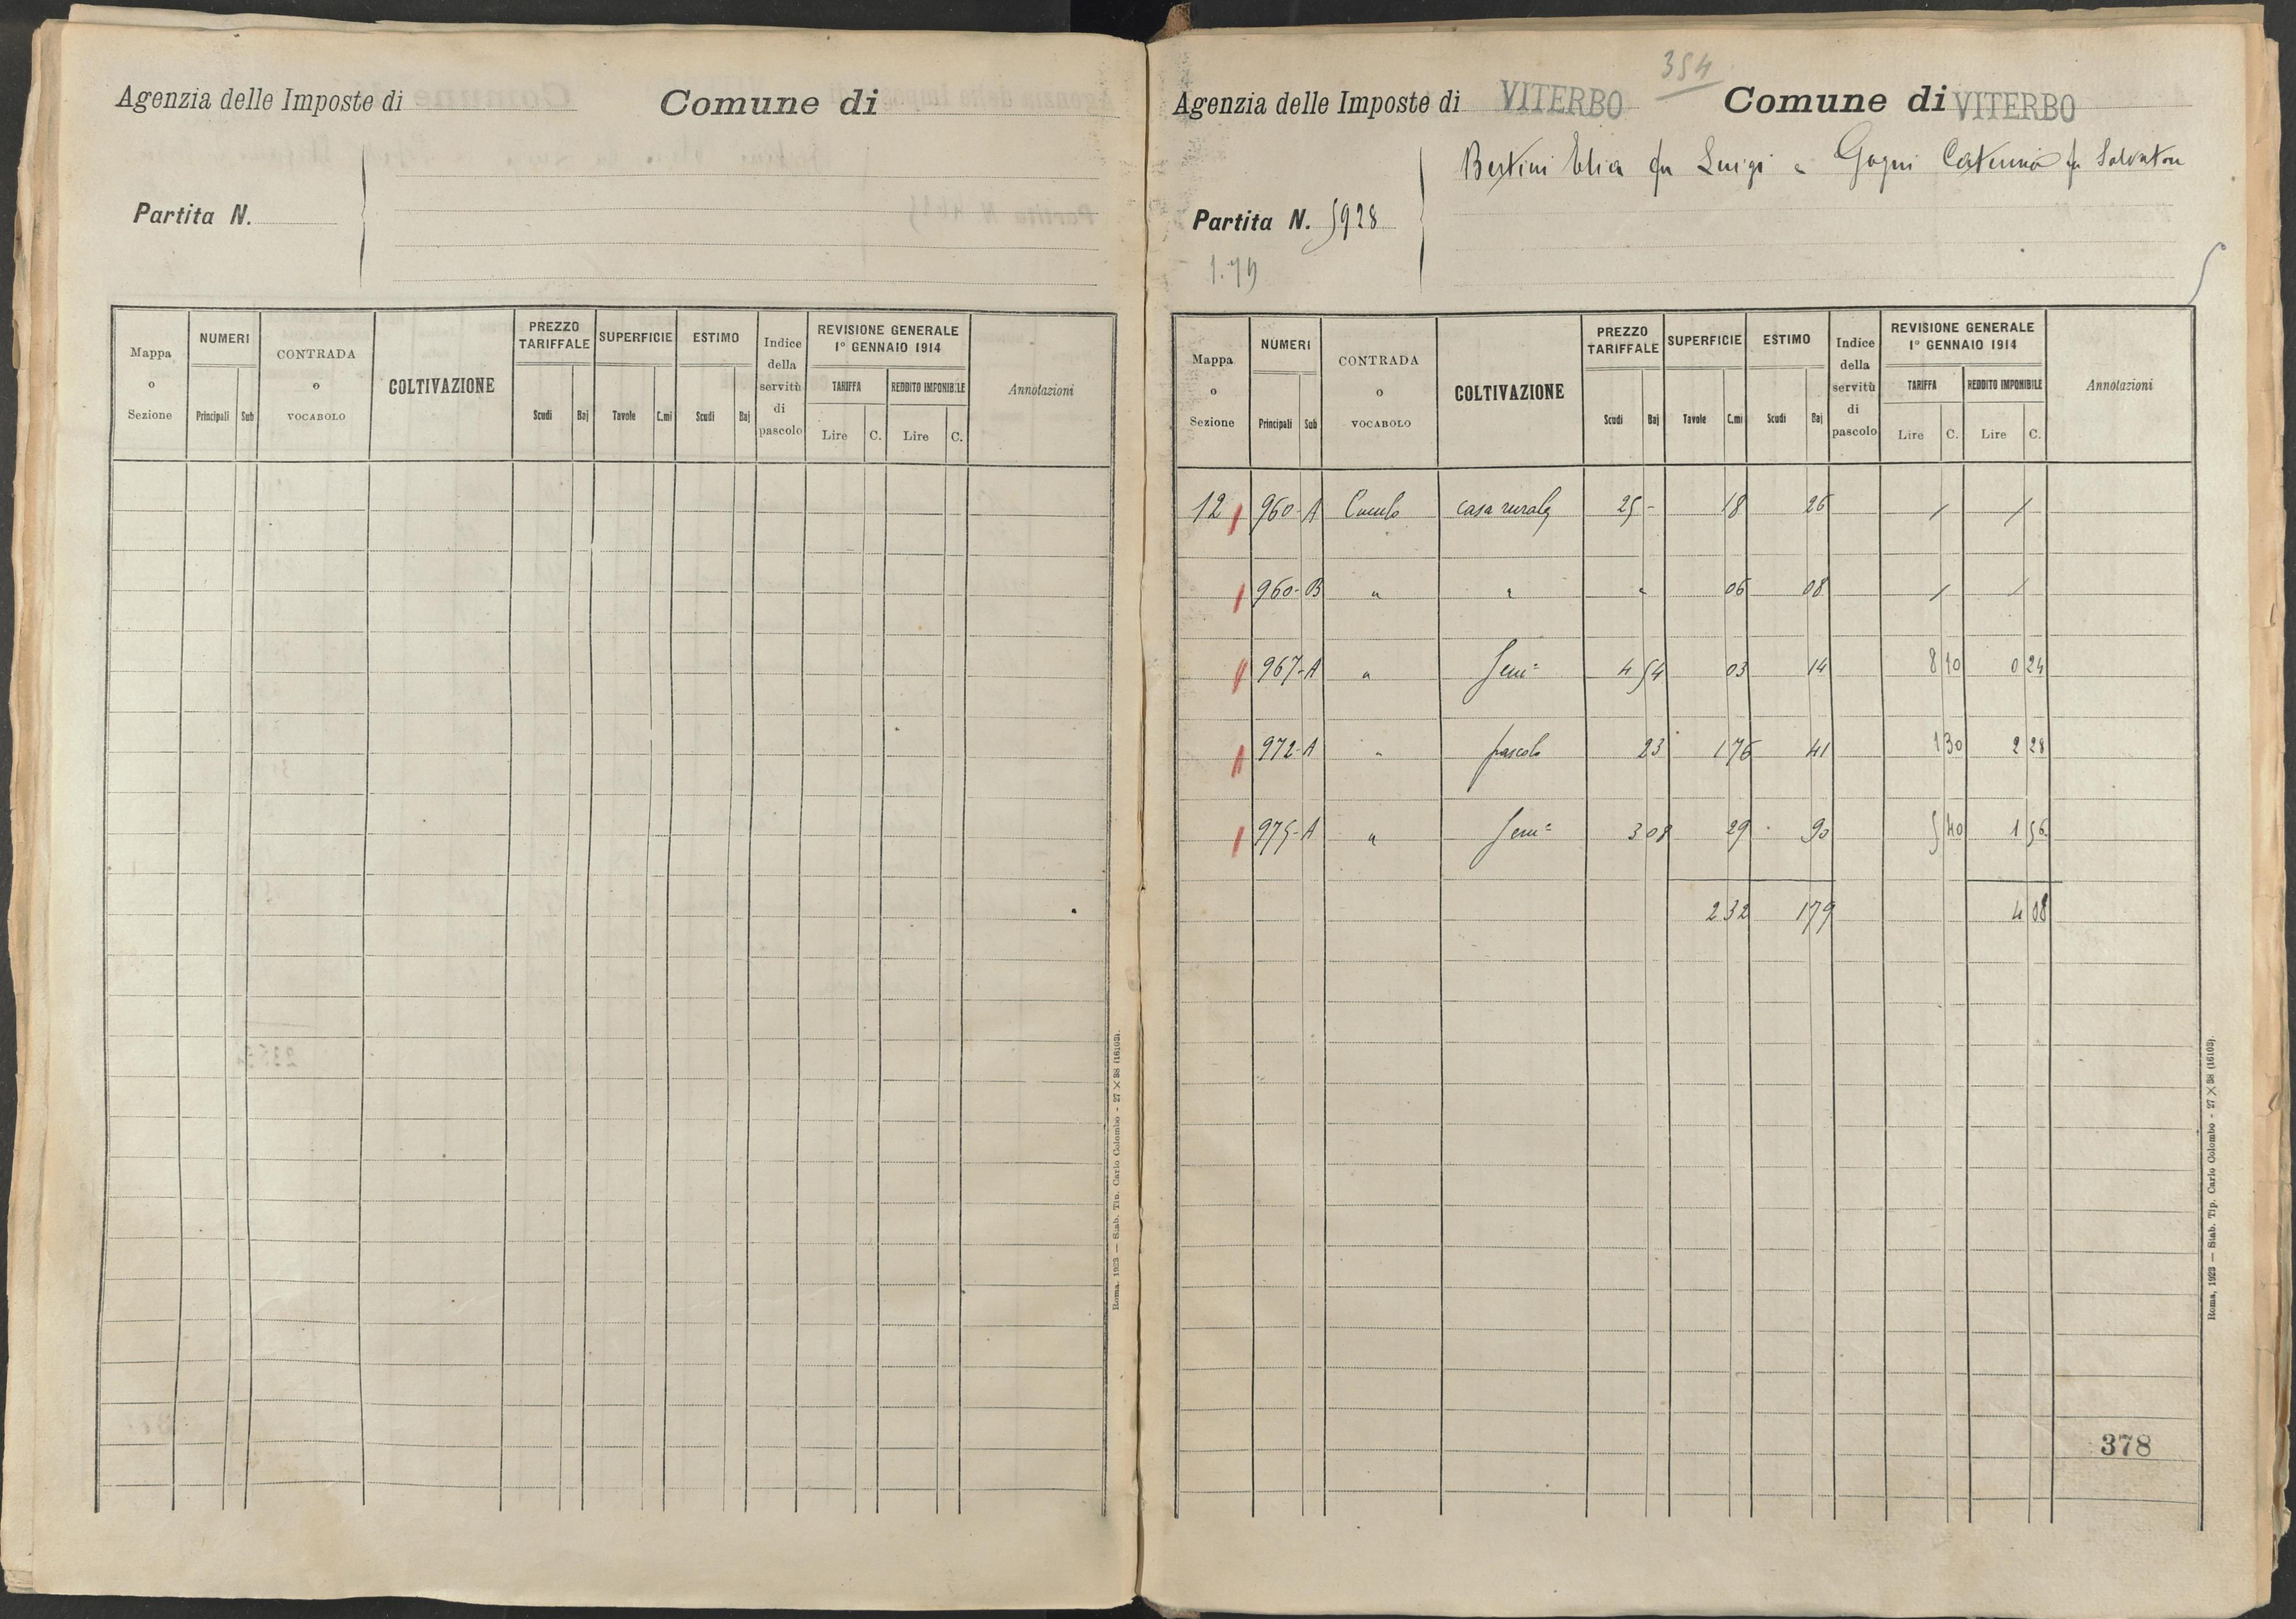 Agenzia delle Imposte di
Comune di
Partita N.
Mappa o Sezione
NUMERI
Principali Sub
CONTRADA o VOCABOLO
COLTIVAZIONE
PREZZO TARIFFALE
Scudi Baj
SUPERFICIE
Tavole C.mi
ESTIMO
Scudi Baj
Indice della servitù di pascolo
REVISIONE GENERALE
1º GENNAIO 1914
TARIFFA REDDITO IMPONIBILE
Lire C. Lire C.
Annotazioni
Roma, 1923 — Stab. Tip. Carlo Colombo - 27 × 38 (16103).
354
Agenzia delle Imposte di VITERBO Comune di VITERBO
Bertini Elia fu Luigi e Gagni Caterina fu Salvatore
Partita N. 5928
1.79
Mappa o Sezione
NUMERI
Principali Sub
CONTRADA o VOCABOLO
COLTIVAZIONE
PREZZO TARIFFALE
Scudi Baj
SUPERFICIE
Tavole C.mi
ESTIMO
Scudi Baj
Indice della servitù di pascolo
REVISIONE GENERALE
1º GENNAIO 1914
TARIFFA REDDITO IMPONIBILE
Lire C. Lire C.
Annotazioni
12 960-A casa rurale 25 - 18 26 / /
960-B " " " 06 08 / /
967-A " Sem= 4 54 03 14 8 10 0 24
972-A " pascolo 23 1 76 41 1 30 2 28
975-A " Sem= 3 08 29 90 5 40 1 56
2 32 1 79 4 08
378
Roma, 1923 — Stab. Tip. Carlo Colombo - 27 × 38 (16103).